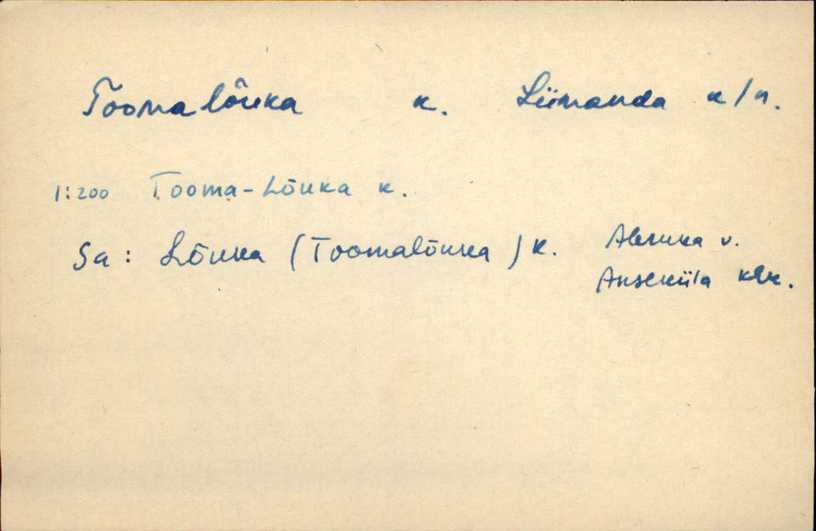 Toomalõuka k. Lümanda k/n.
1:200 Tooma-Lõuka k.
Sa: Lõuka (Toomalõuka) k. Abruka v.
Anseküla khk.